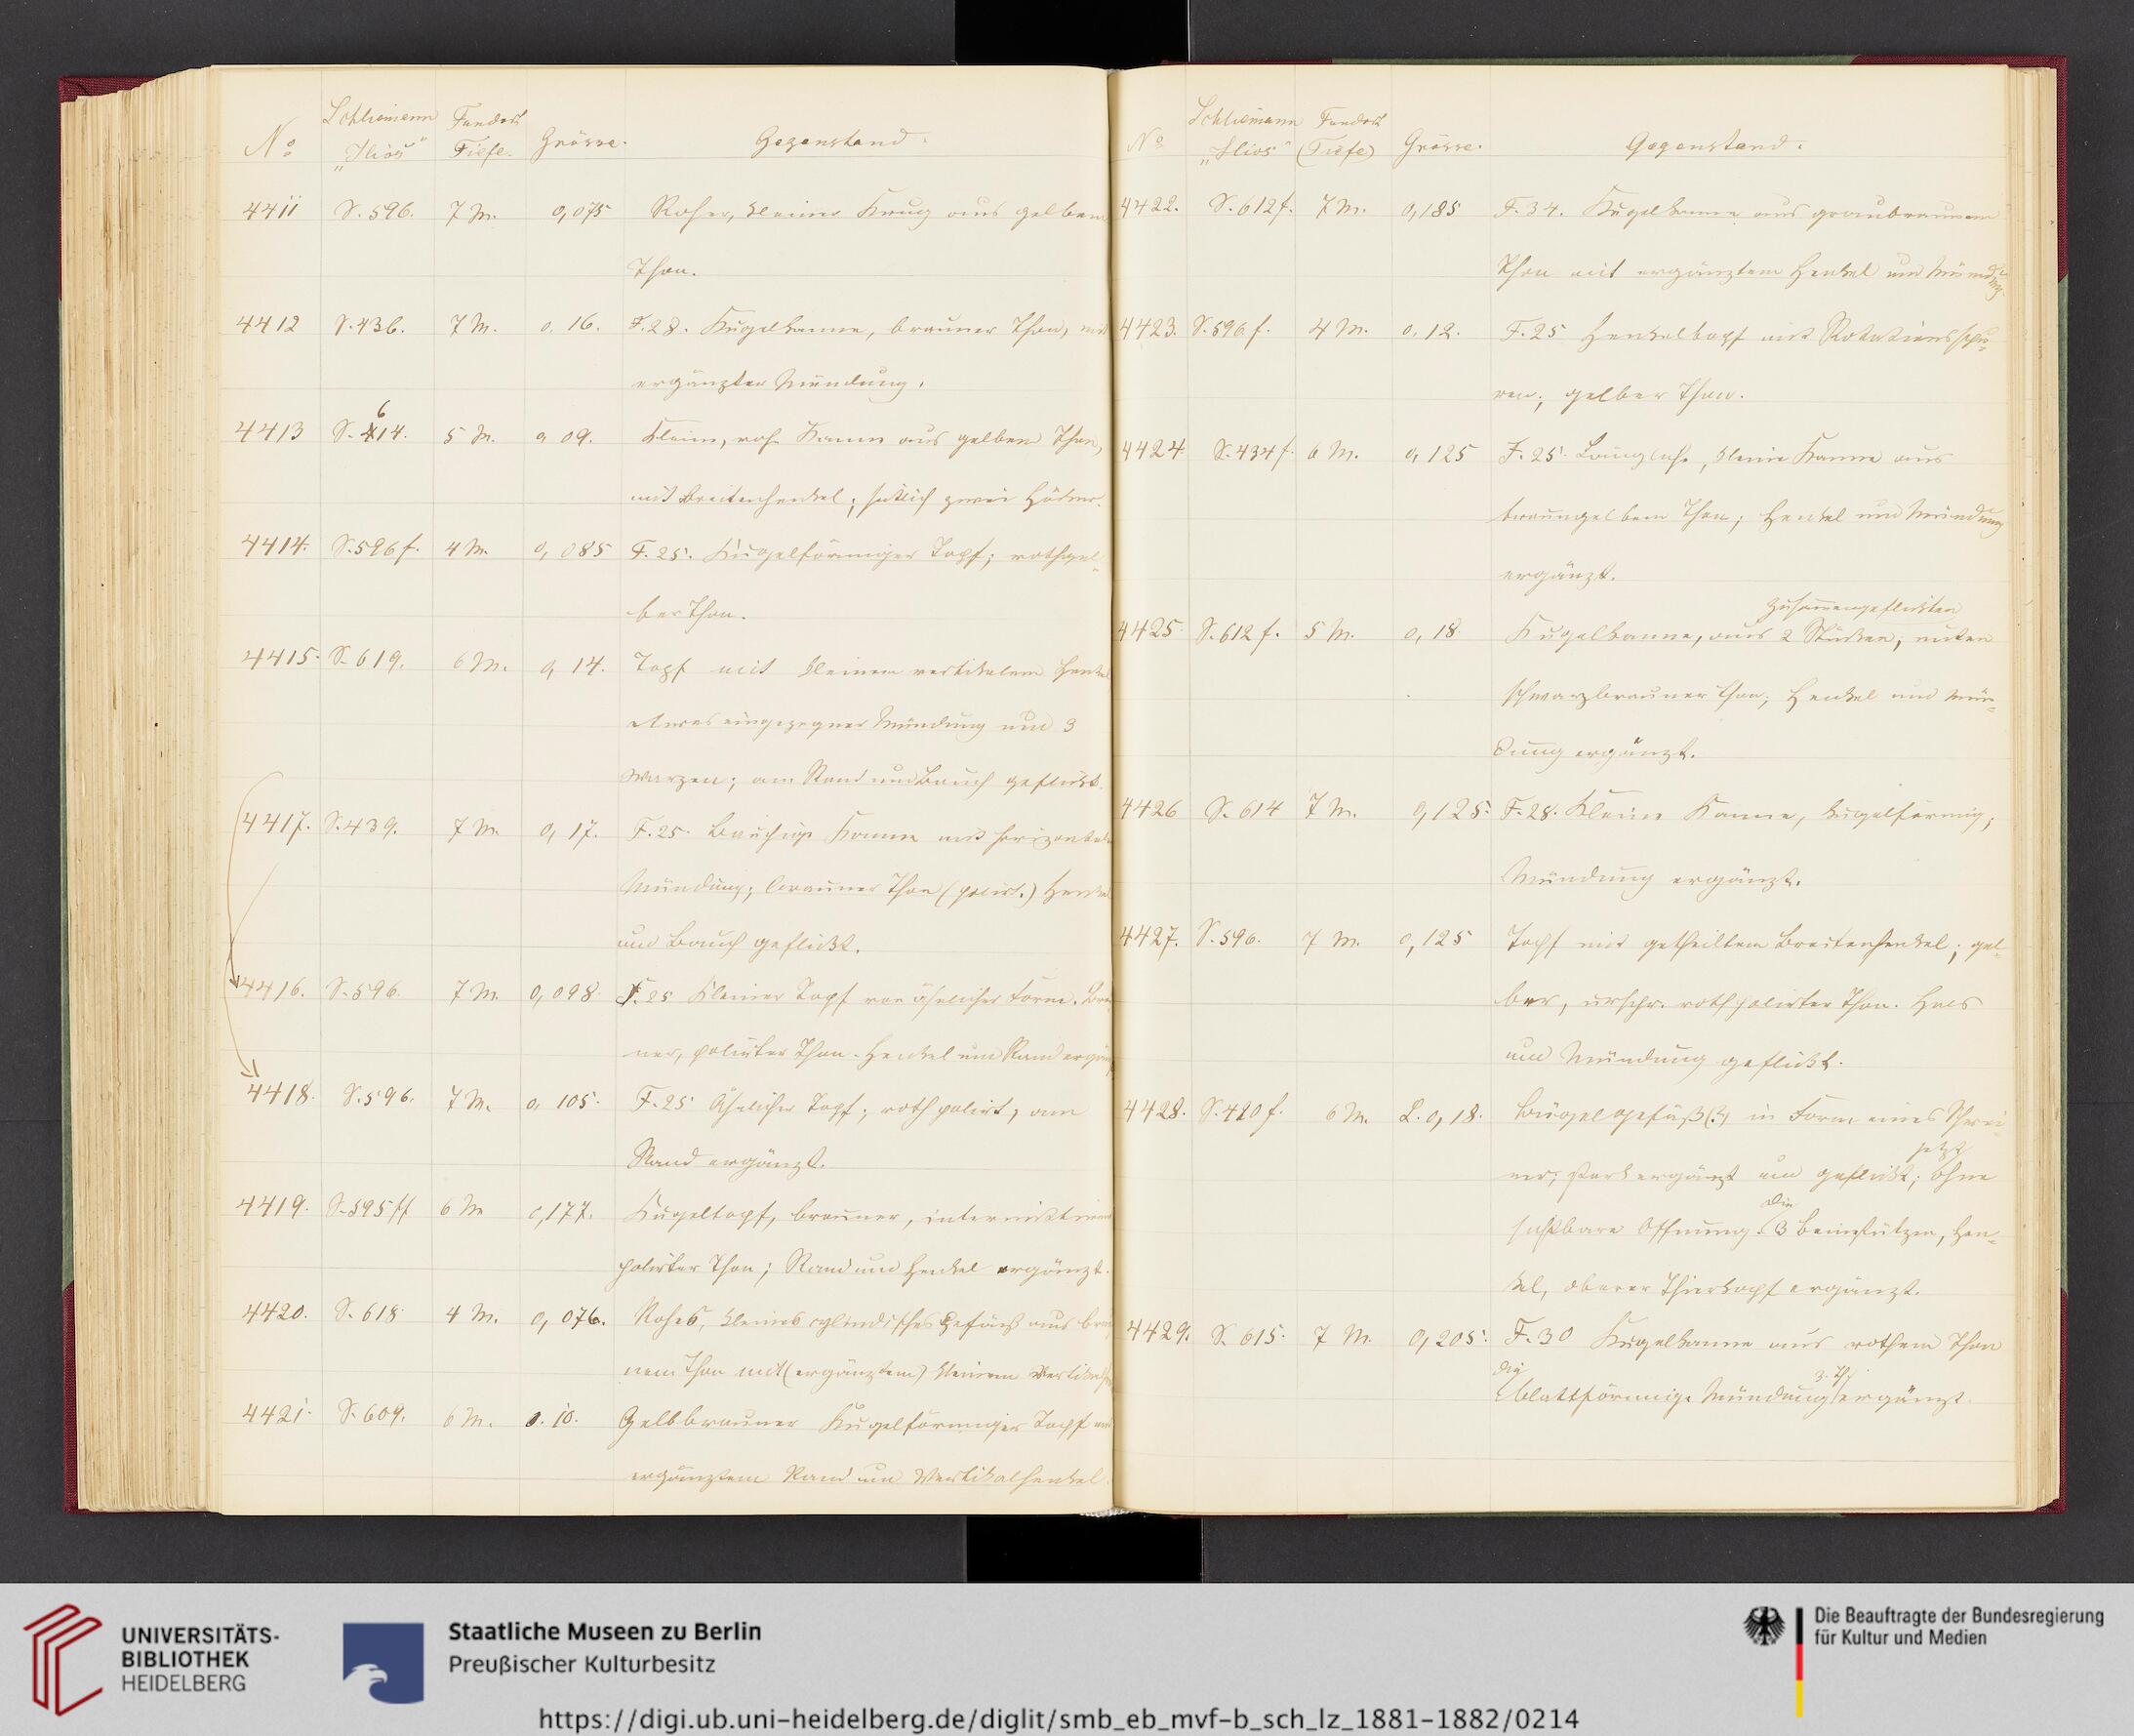 Schliemann Fundort
No „Ilios“ Tiefe. Grösse. Gegenstand.
4411 S. 596. 7 M. 0,075 Roher, kleiner Krug aus gelbem
Thon.
4412 S. 436. 7 M. 0,16. F. 28. Kugelkanne, brauner Thon, mit
ergänzter Mündung.
6
4413 S. 414. 5 M. 0,09. Kleine, rohe Kanne aus gelbem Thon,
mit Breitenhenkel; seitlich zwei Höcker.
4414. S. 596 f. 4 M. 0,085 F. 25. Kugelförmiger Topf; rothgel-
ber Thon.
4415. S. 619. 6 M. 0,14. Topf mit kleinem vertikalem Henkel
etwas eingezogner Mündung und 3
Warzen; am Rand und Bauch geflickt.
4417. S. 439. 7 M. 0,17. F. 25. Bauchige Kanne mit horizontaler
Mündung; brauner Thon (polirt.) Henkel
und Bauch geflickt.
4416. S. 596. 7 M. 0,098 F. 25 Kleiner Topf von ähnlicher Form. Brau
ner, polirter Thon. Henkel und Rand ergänzt
4418. S. 596. 7 M. 0,105. F. 25 Ähnlicher Topf; roth polirt, am
Rand ergänzt.
4419. S. 595 ff 6 M 0,177. Kugeltopf, brauner,
polirter Thon; Rand und Henkel ergänzt.
4420. S. 618 4 M. 0,076. Rohes, kleines cylindrisches Gefäß aus brau
nem Thon mit (ergänztem) kleinem
4421. S. 609. 6 M. 0.10. Gelbbrauner Kugelförmiger Topf mit
ergänztem Rand und Vertikalhenkel.
Schliemann Fundort
No „Ilios“ (Tiefe) Grösse. Gegenstand.
4422. S. 612 f. 7 M. 0,185 F. 34. Kugelkanne aus graubraunem
Thon mit ergänztem Henkel und Mündung.
4423. S. 596 f. 4 M. 0,12. F. 25 Henkeltopf mit Rotationsspu-
ren; gelber Thon.
4424. S. 434 f. 6 M. 0,125 F. 25. Längliche, kleine Kanne aus
braungelbem Thon; Henkel und Mündung
ergänzt.
zusammengeflickten
4425. S. 612 f. 5 M. 0,18 Kugelkanne, aus 2 Stücken, unten
schwarzbrauner Thon; Henkel und Mün-
dung ergänzt.
4426 S. 614 7 M. 0,125. F. 28. Kleine Kanne, kugelförmig;
Mündung ergänzt.
4427. S. 596. 7 M. 0,125 Topf mit getheiltem Breitenhenkel; gel-
ber, urspr. roth polirter Thon. Hals
und Mündung geflickt.
4428. S. 420 f. 6 M. L. 0,18. Bügelgefäß (?) in Form eines Schwei-
jetzt
nes; stark ergänzt und geflickt; ohne
Die
sichtbare Öffnung. 3 Beinstützen, Hen-
kel, oberer Thierkopf ergänzt.
4429. S. 615. 7 M. 0,205. F. 30 Kugelkanne aus rothem Thon
die z. Th.
blattförmige Mündung ergänzt.
UNIVERSITÄTS-
BIBLIOTHEK
HEIDELBERG
Staatliche Museen zu Berlin
Preußischer Kulturbesitz
Die Beauftragte der Bundesregierung
für Kultur und Medien
https://digi.ub.uni-heidelberg.de/diglit/smb_eb_mvf-b_sch_lz_1881-1882/0214